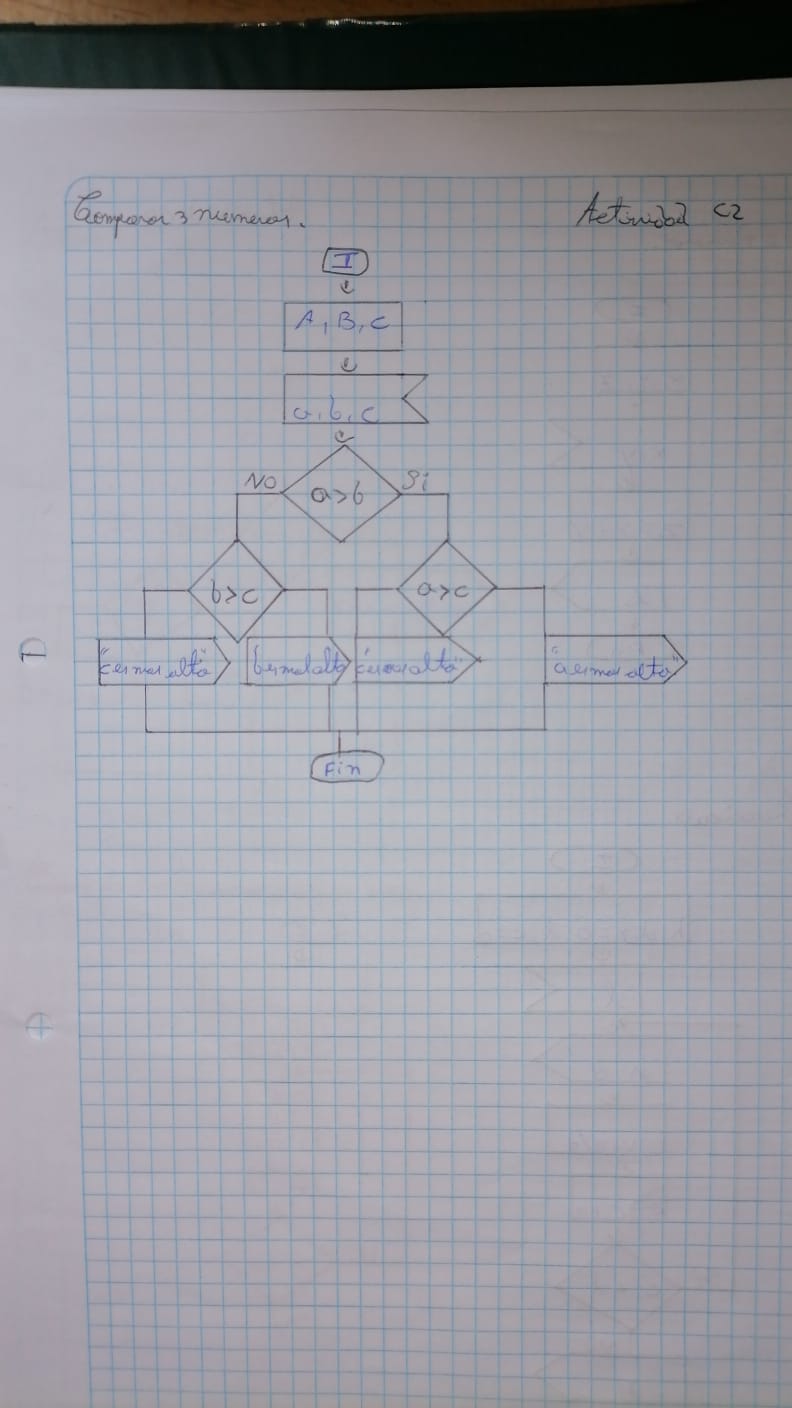 Comparar 3 numeros. Actividad C2
I
A, B, C
a, b, c
NO a>b Si
b>c a>c
"c es mas alto" b es mas alto "c es mas alto" "a es mas alto"
Fin